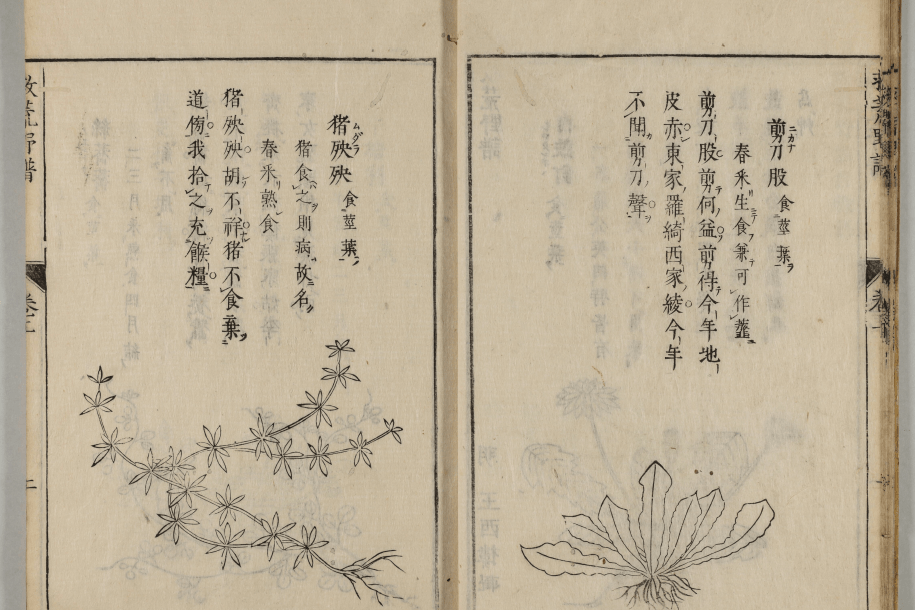 剪刀股 食莖葉
ニカナ
春采生食兼可作虀
剪刀股剪何益剪得今年地
皮赤東家羅綺西家綾今年
不聞剪刀聲
猪殃殃 食莖葉
ムグラ
猪食之則病故名
春采熟食
猪殃殃胡不祥猪不食棄
道傍我拾之充餱糧
救荒野譜
卷